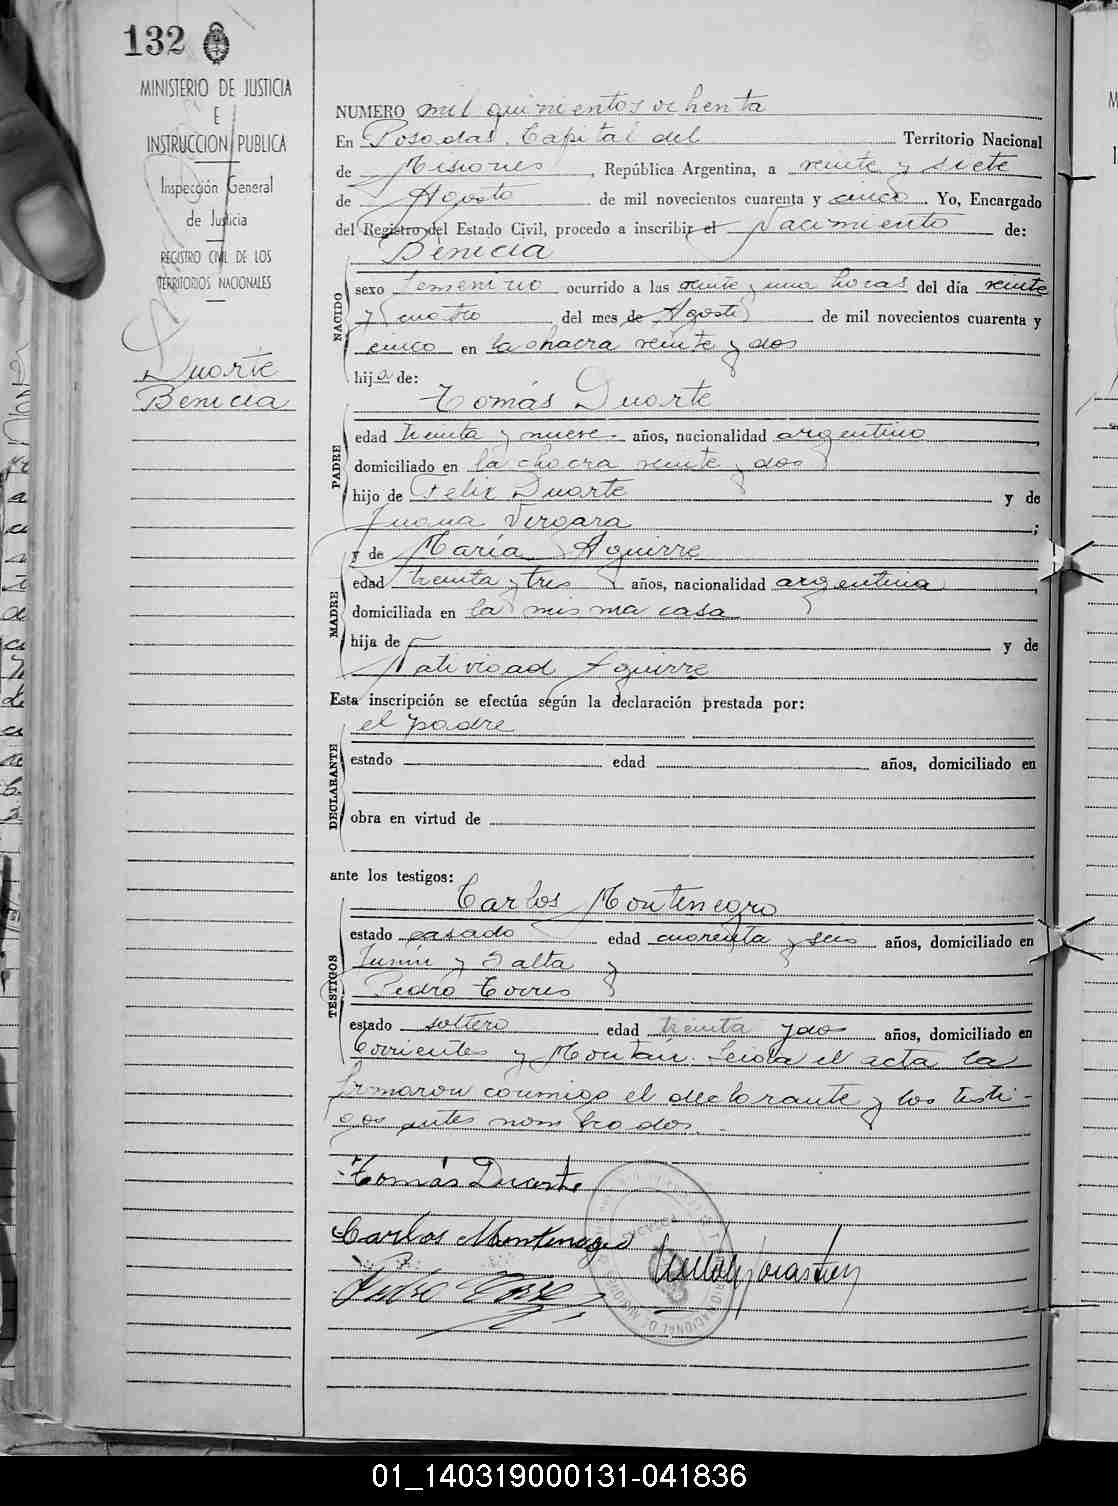 132
MINISTERIO DE JUSTICIA
E
INSTRUCCION PUBLICA
Inspección General
de Justicia
REGISTRO CIVIL DE LOS
TERRITORIOS NACIONALES
Duarte
Benicia
NUMERO mil quinientos ochenta
En Posadas, Capital del Territorio Nacional
de Misiones, República Argentina, a veinte y siete
de Agosto de mil novecientos cuarenta y cinco. Yo, Encargado
del Registro del Estado Civil, procedo a inscribir el Nacimiento de:
Benicia
NACIDO
sexo femenino ocurrido a las veinte y una horas del día veinte
y cuatro del mes de Agosto de mil novecientos cuarenta y
cinco en la chacra veinte y dos
hija de:
Tomás Duarte
PADRE
edad treinta y nueve años, nacionalidad argentino
domiciliado en la chacra veinte y dos
hijo de Felix Duarte y de
Juana Vergara;
y de María Aguirre
MADRE
edad treinta y tres años, nacionalidad argentina
domiciliada en la misma casa
hija de y de
Natividad Aguirre
Esta inscripción se efectúa según la declaración prestada por:
el padre
DECLARANTE
estado edad años, domiciliado en
obra en virtud de
ante los testigos:
Carlos Montenegro
TESTIGOS
estado casado edad cuarenta y seis años, domiciliado en
Junin y Salta y
Pedro Torres
estado soltero edad treinta y dos años, domiciliado en
Corrientes y . Leida el acta la
firmaron conmigo el declarante y los testi-
gos antes nombrados.-
Tomás Duarte
Carlos Montenegro
Pedro Torres
01_140319000131-041836